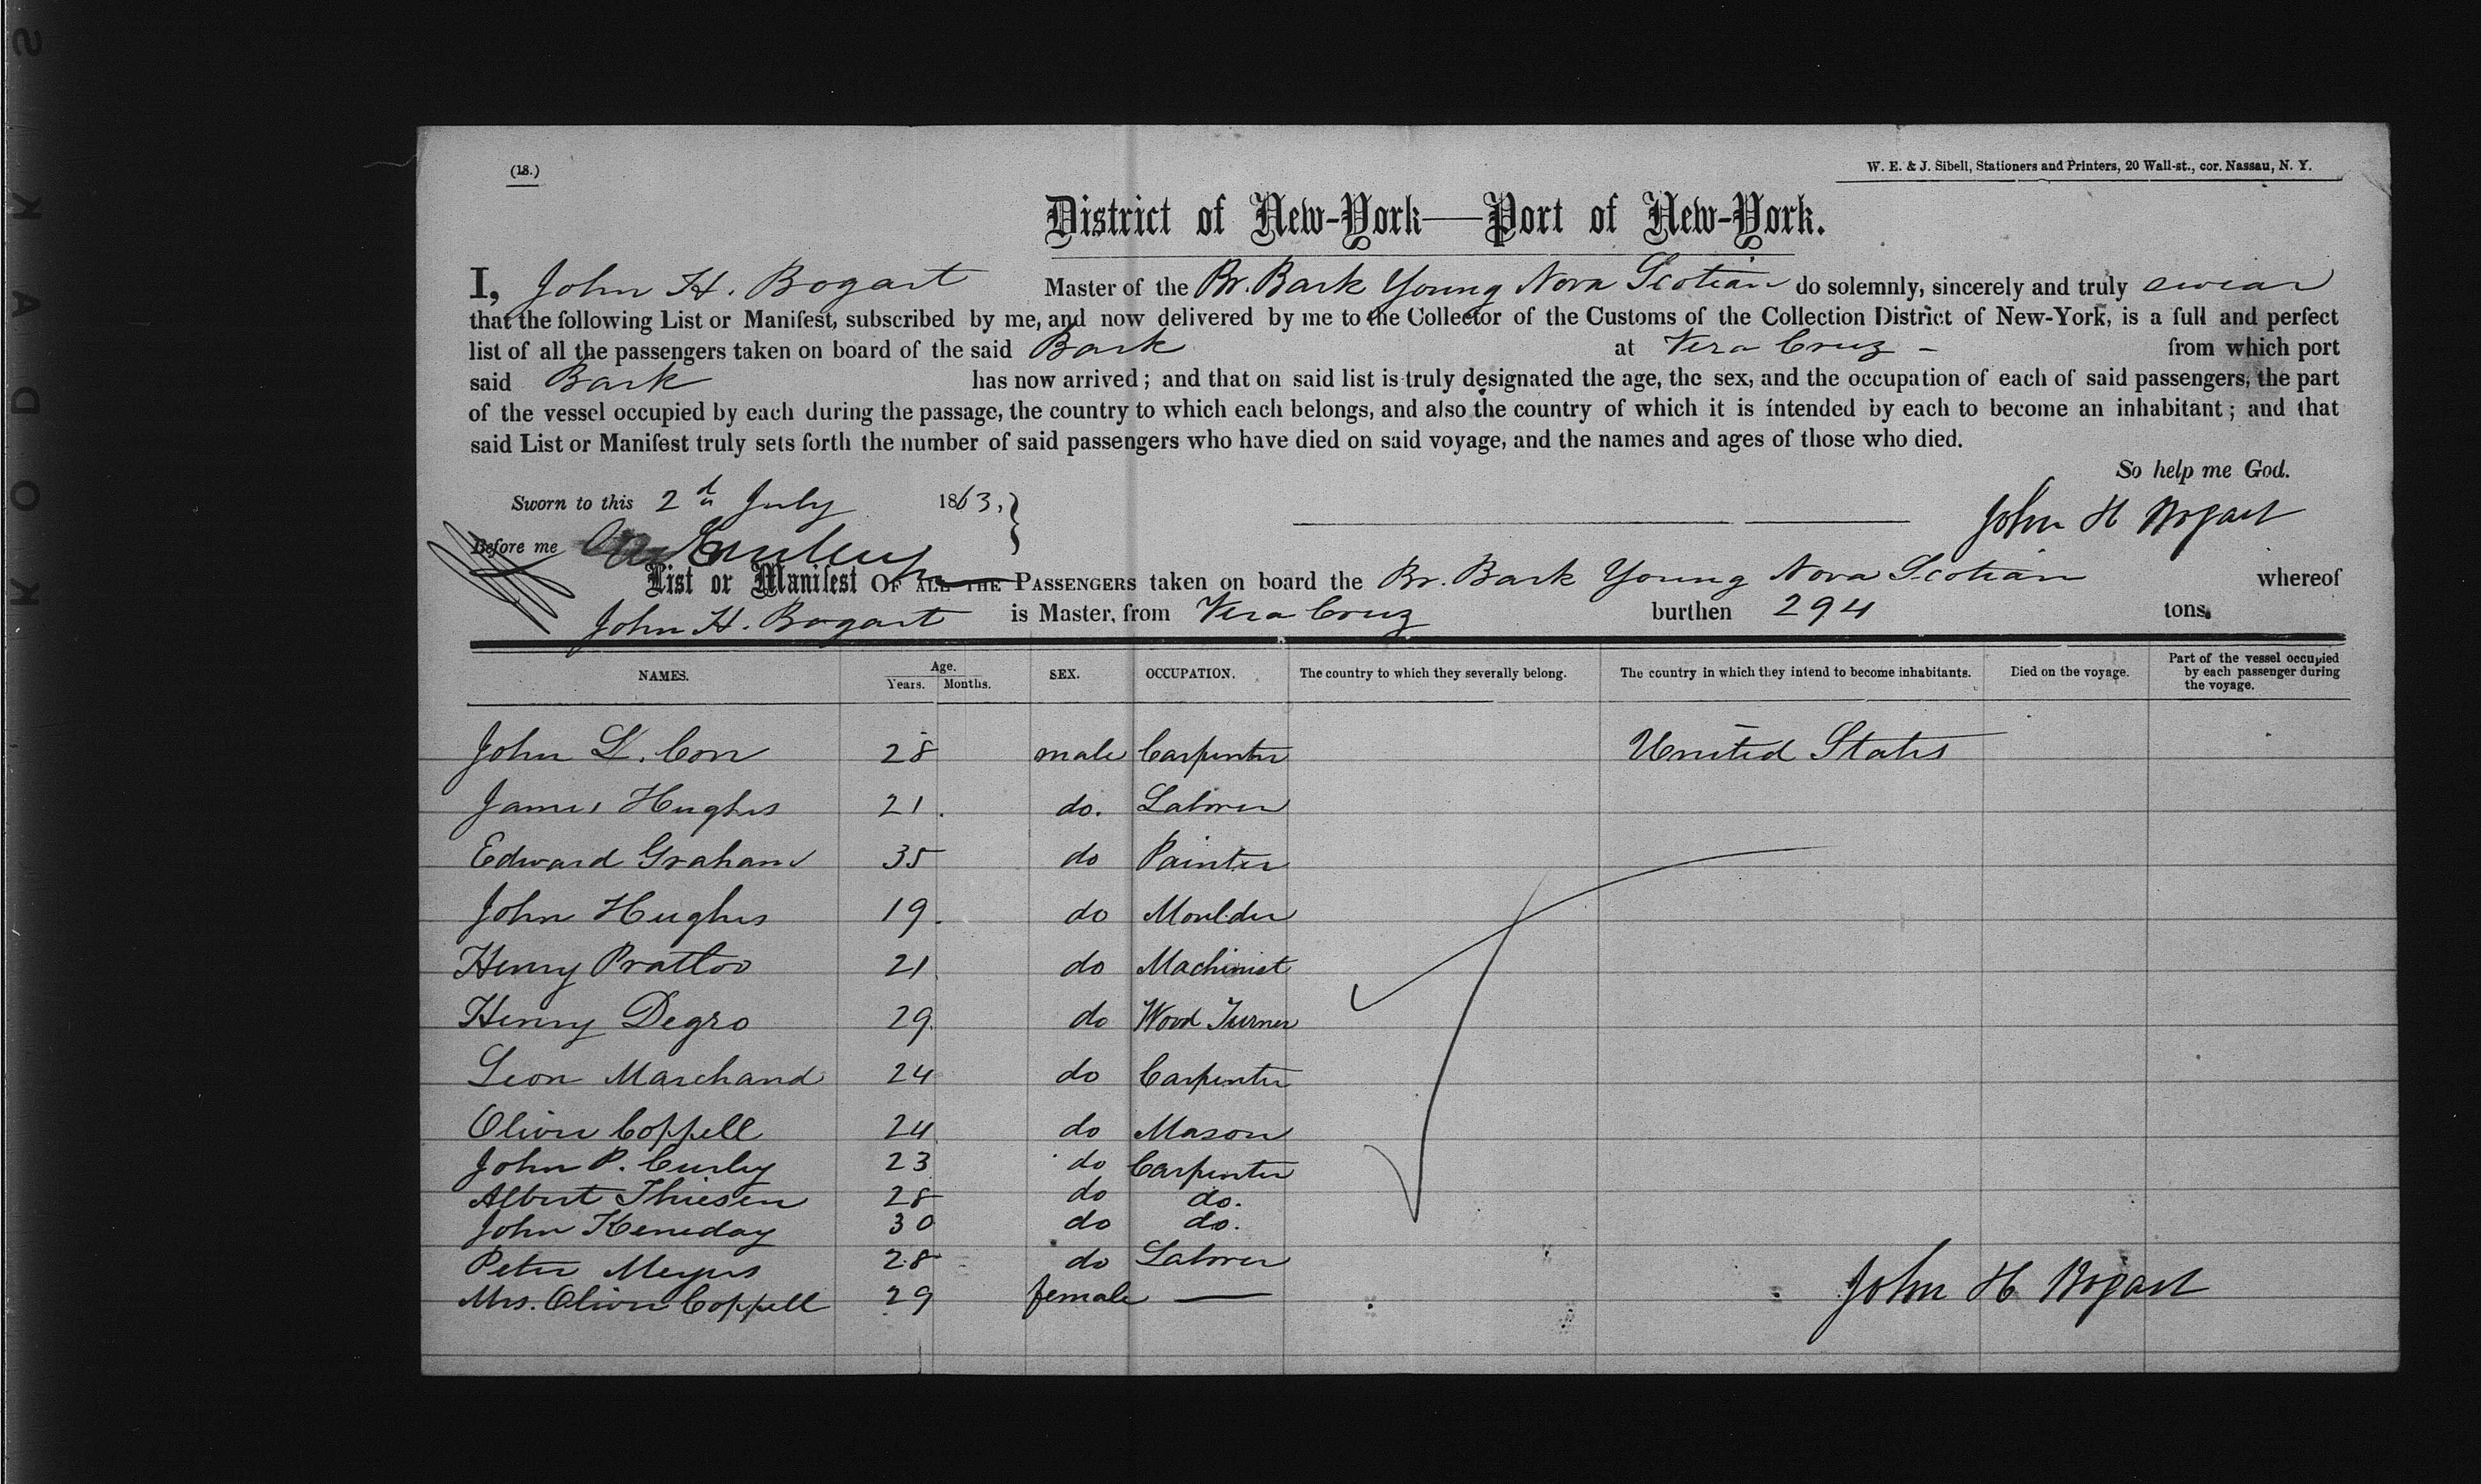 KODAK S
(18.)
W. E. & J. Sibell, Stationers and Printers, 20 Wall-st., cor. Nassau, N. Y.
District of New-York—Port of New-York.
I, John H. Bogart Master of the Br. Bark Young Nova Scotian do solemnly, sincerely and truly swear
that the following List or Manifest, subscribed by me, and now delivered by me to the Collector of the Customs of the Collection District of New-York, is a full and perfect
list of all the passengers taken on board of the said Bark at Vera Cruz - from which port
said Bark has now arrived; and that on said list is truly designated the age, the sex, and the occupation of each of said passengers, the part
of the vessel occupied by each during the passage, the country to which each belongs, and also the country of which it is intended by each to become an inhabitant; and that
said List or Manifest truly sets forth the number of said passengers who have died on said voyage, and the names and ages of those who died.
So help me God.
Sworn to this 2d July 1863,
John H Bogart
Before me
List or Manifest OF ALL THE PASSENGERS taken on board the Br. Bark Young Nova Scotian whereof
John H. Bogart is Master, from Vera Cruz burthen 294 tons.
NAMES. Age. Years. Months. SEX. OCCUPATION. The country to which they severally belong. The country in which they intend to become inhabitants. Died on the voyage. Part of the vessel occupied by each passenger during the voyage.
John L. Con 28 male Carpenter United States
James Hughes 21. do. Laborer
Edward Graham 35 do Painter
John Hughes 19. do Moulder
Henry 21 do Machinist
Henry Degro 29 do Wood Turner
Leon Marchand 24 do Carpenter
Oliver Coppell 24 do Mason
John P. Curley 23 do Carpenter
Albert Thiesen 28 do do.
John Keneday 30 do do.
Peter Meyers 28 do Laborer
Mrs. Oliver Coppell 29 female —
John H Bogart